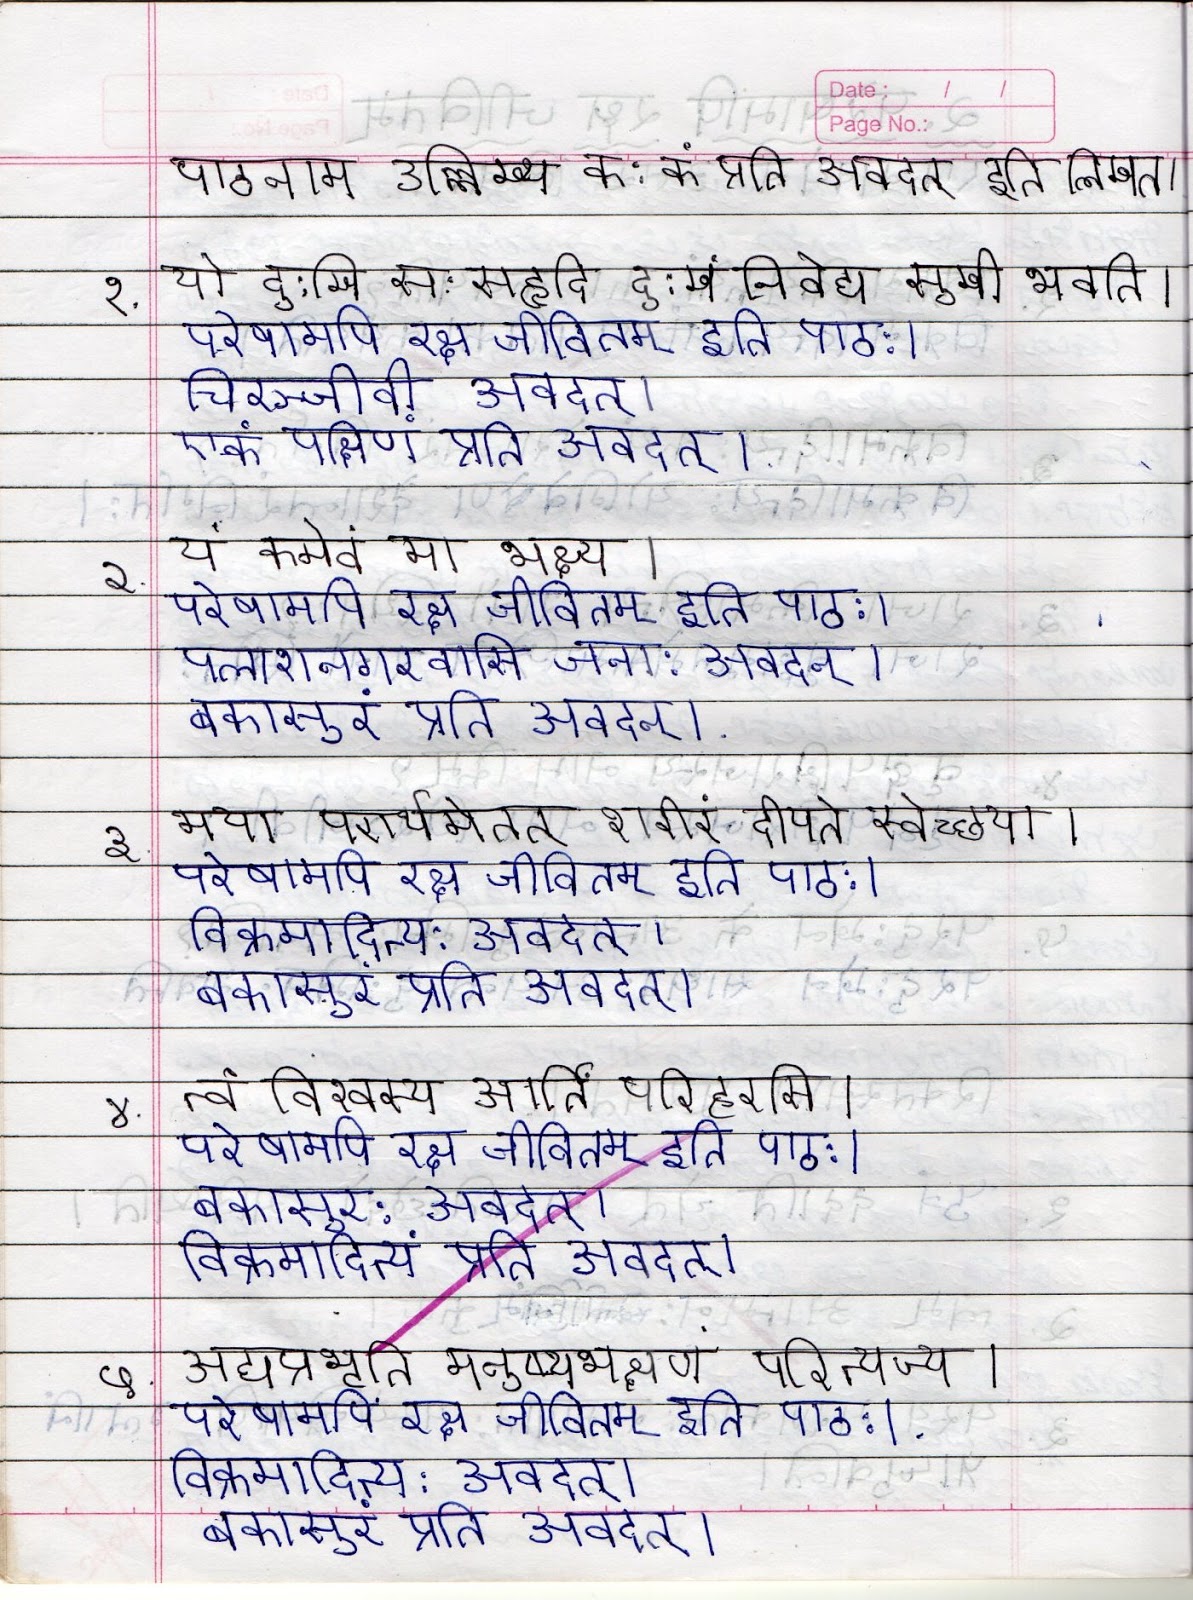 Date : / /
Page No.:
पाठनाम उल्लिख्य कः कं प्रति अवदत् इति लिखत।
१. यो दुःखि सः सहृदि दुःखं निवेद्य सुखी भवति।
परेषामपि रक्ष जीवितम् इति पाठः।
चिरञ्जीवी अवदत्।
एकं पक्षिणं प्रति अवदत्।
२. यं कमेवं मा भक्ष्य।
परेषामपि रक्ष जीवितम् इति पाठः।
पलाशनगरवासि जनाः अवदन्।
बकासुरं प्रति अवदन्।
३. मया परार्थमेतत् शरीरं दीयते स्वेच्छया।
परेषामपि रक्ष जीवितम् इति पाठः।
विक्रमादित्यः अवदत्।
बकासुरं प्रति अवदत्।
४. त्वं विश्वस्य आर्तिं परिहरसि।
परेषामपि रक्ष जीवितम् इति पाठः।
बकासुरः अवदत्।
विक्रमादित्यं प्रति अवदत्।
५. अद्यप्रभृति मनुष्यभक्षणं परित्यज्य।
परेषामपि रक्ष जीवितम् इति पाठः।
विक्रमादित्यः अवदत्।
बकासुरं प्रति अवदत्।